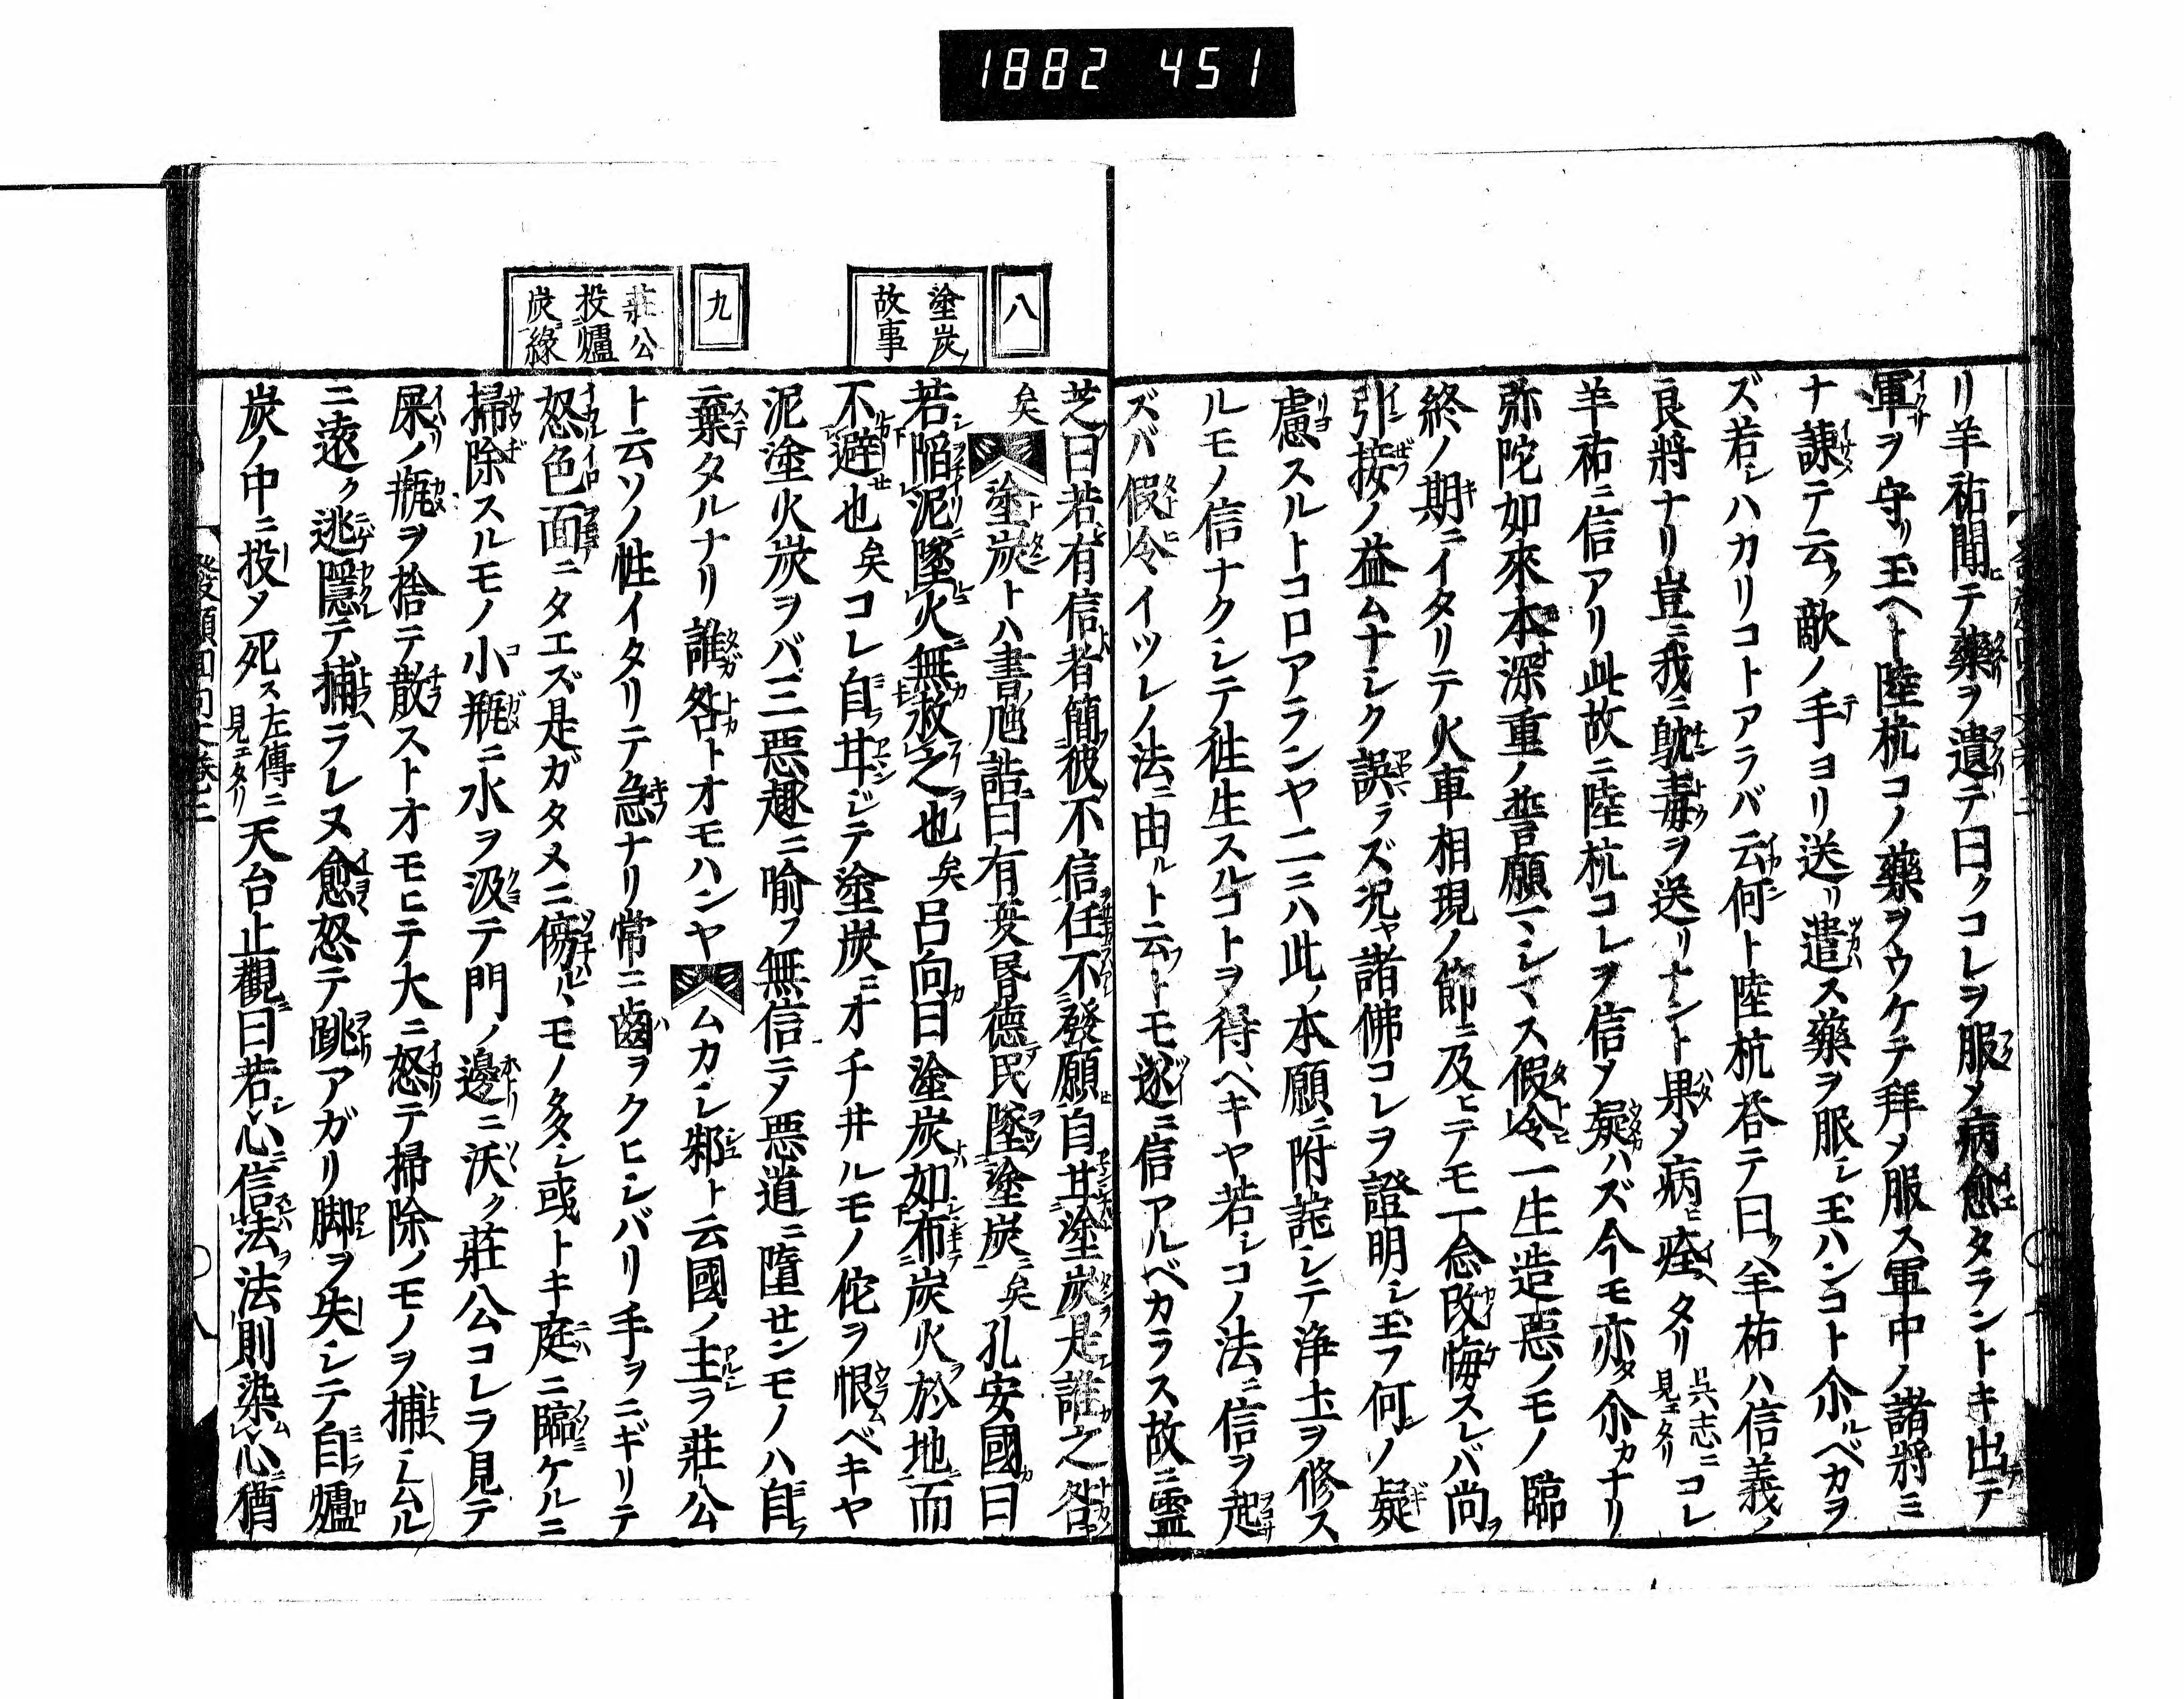 1882 451
リ羊祐聞テ藥ヲ遺テ曰クコレヲ服メ病愈タラントキ出テ
軍ヲ守リ玉ヘト陸杭コノ藥ヲウケテ拜メ服ス軍中ノ諸將ミ
ナ諌テ云ク敵ノ手ヨリ送リ遣ス藥ヲ服シ玉ハンコト尒ルベカヲ
ズ若シハカリコトアラバ云何ト陸杭答テ曰ク羊祐ハ信義ノ
良將ナリ豈ニ我ニ鴆毒ヲ送リナント果メ病ヒ痊タリ呉志ニ見エタリコレ
羊祐ニ信アリ此故ニ陸杭コレヲ信メ疑ハズ今モ亦タ尒カナリ
弥陀如來本深重ノ誓願マシマス假令一生造惡ノモノ臨
終ノ期ニイタリテ火車相現ノ節ニ及ヒテモ一念改悔スレバ尚ヲ
引接ノ益ムナシク誤ラズ況ヤ諸佛コレヲ證明シ玉フ何ノ疑
慮スルトコロアランヤ二ニハ此ノ本願ニ附託シテ浄土ヲ修ス
ルモノ信ナクシテ徃生スルコトヲ待ベキヤ若シコノ法ニ信ヲ起
ズバ假令イツレノ法ニ由ルト云フトモ遂ニ信アルベカラス故ニ靈
八
塗炭ノ
故事
九
莊公
投爐
炭緣
芝曰若有信者簡彼不信任不發願自甘塗炭是誰之咎
矣塗炭トハ書虺誥曰有夏昬德民墜塗炭矣孔安國曰
若陷泥墜火無救之也矣呂向曰塗炭如布炭火於地而
不避也矣コレ自甘ジテ塗炭ニオチ井ルモノ佗ヲ恨ムベキヤ
泥塗火炭ヲバ三惡趣ニ喻フ無信ニメ惡道ニ墮センモノハ自ラ
棄タルナリ誰咎トオモハンヤムカシ邾ト云國ノ主ヲ莊公
ト云ソノ性イタリテ急ナリ常ニ齒ヲクヒシバリ手ヲニギリテ
怒色面ニタエズ是ガタメニ傷ルヽモノ多シ或トキ庭ニ臨ケルニ
掃除スルモノ小瓶ニ水ヲ汲テ門ノ邊ニ沃ク莊公コレヲ見テ
屎ノ瓶ヲ捨テ散ストオモヒテ大ニ怒テ掃除ノモノヲ捕シムル
ニ遠ク逃隱テ捕ラレヌ愈怒テ跳アガリ脚ヲ失シテ自爐
炭ノ中ニ投メ死ス左傳ニ見エタリ天台止觀曰若シ心信法法則染心猶
發願回向文卷三
八